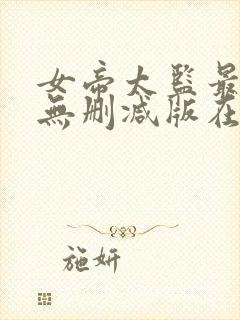 女帝太監最
無刪減版在
施妍